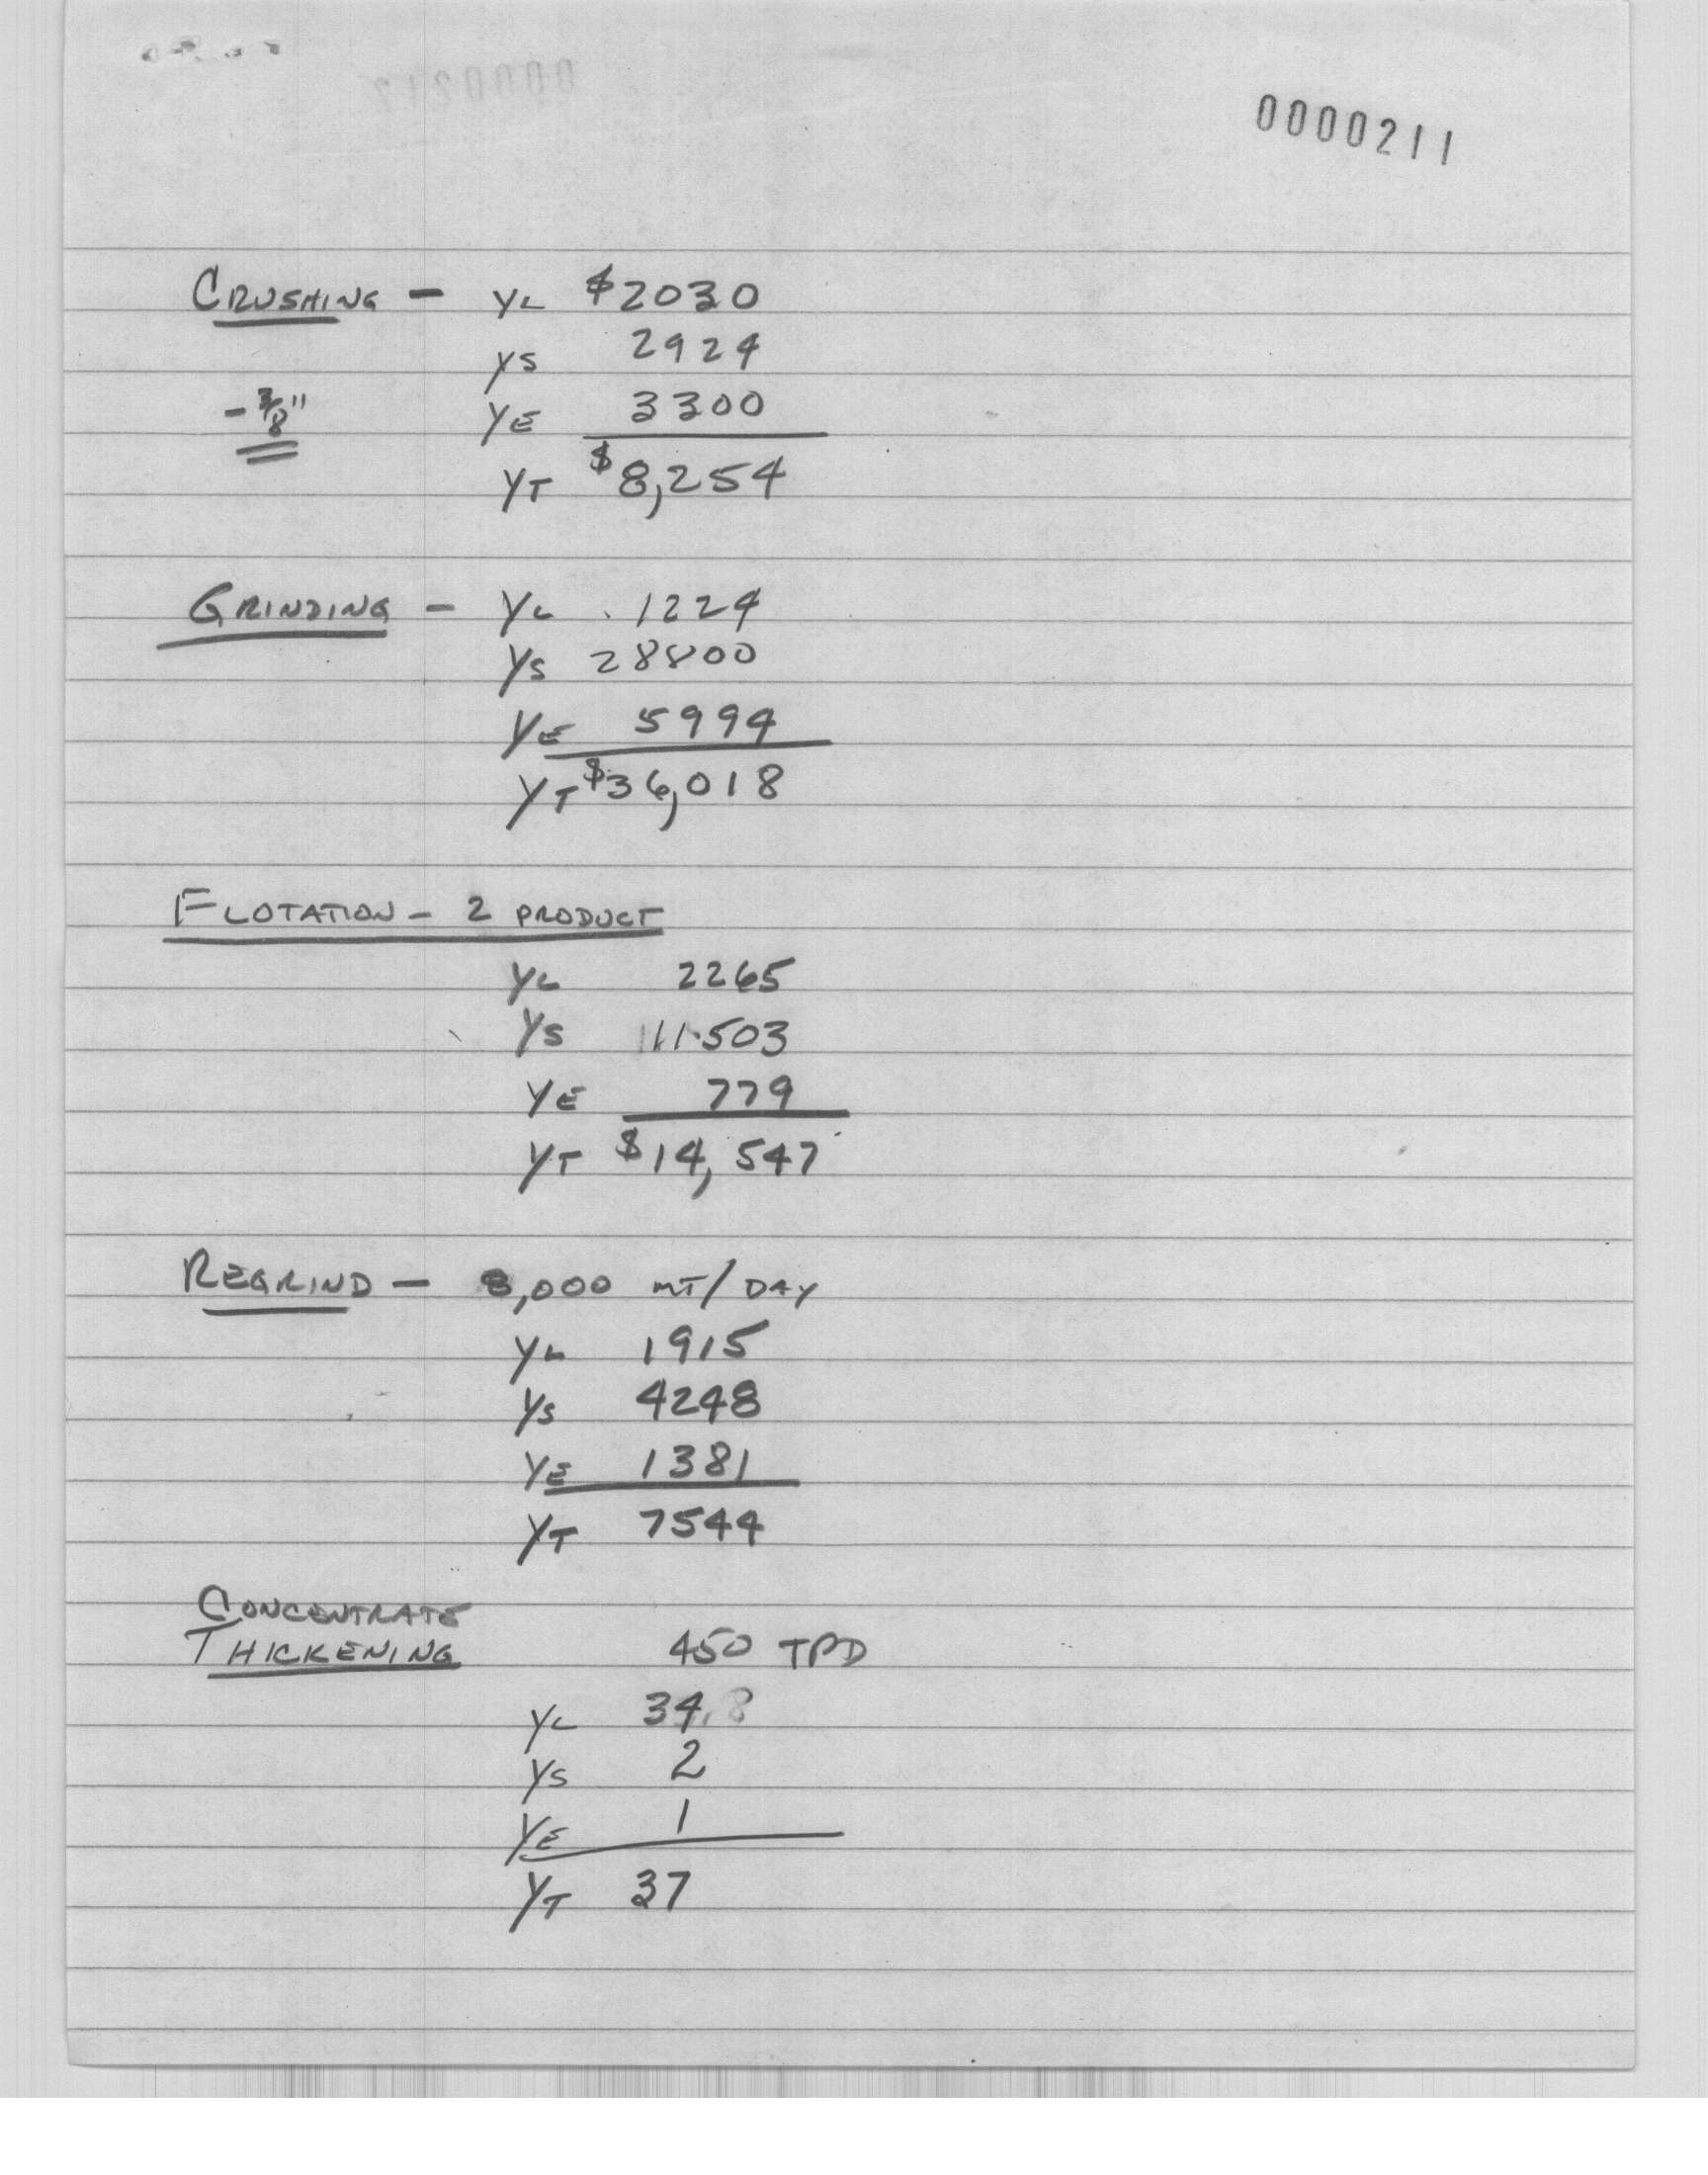 0000212
0000211
CRUSHING - YL $2030
YS 2924
- 3/8" YE 3300
YT $8,254
GRINDING - YL 1224
YS 28800
YE 5994
YT $36,018
FLOTATION - 2 PRODUCT
YL 2265
YS 11503
YE 779
YT $14,547
REGRIND - 8,000 MT/DAY
YL 1915
YS 4248
YE 1381
YT 7544
CONCENTRATE
THICKENING 450 TPD
YL 34.8
YS 2
YE 1
YT 37